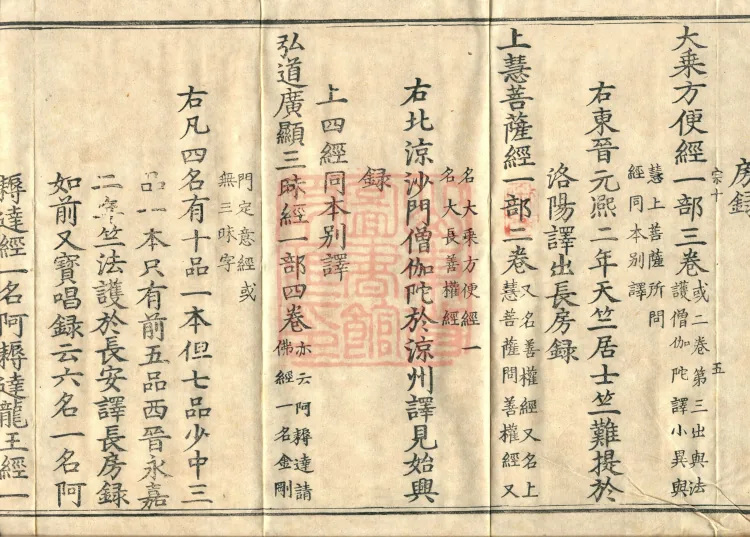 房録
宗十 五
大乗方便經一部三卷
或二卷第三出與法
護僧伽陀譯小異與
慧上菩薩所問
經同本別譯
右東晉元熙二年天竺居士竺難提於
洛陽譯出長房録
上慧菩薩經一部二卷
又名善權經又名上
慧菩薩問善權經又
名大乗方便經一
名大長善權經
右北涼沙門僧伽陀於涼州譯見始興
録
上四經同本別譯
弘道廣顯三昧經一部四卷
亦云阿耨達請
佛經一名金剛
門定意經或
無三昧字
右凡四名有十品一本但七品少中三
品一本只有前五品西晉永嘉
二竺法護於長安譯長房録
如前又寶唱録云六名一名阿
耨達經一名阿耨達龍王經一